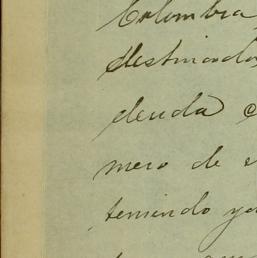 Colombia
destinada
deuda
mero de
teniendo ya